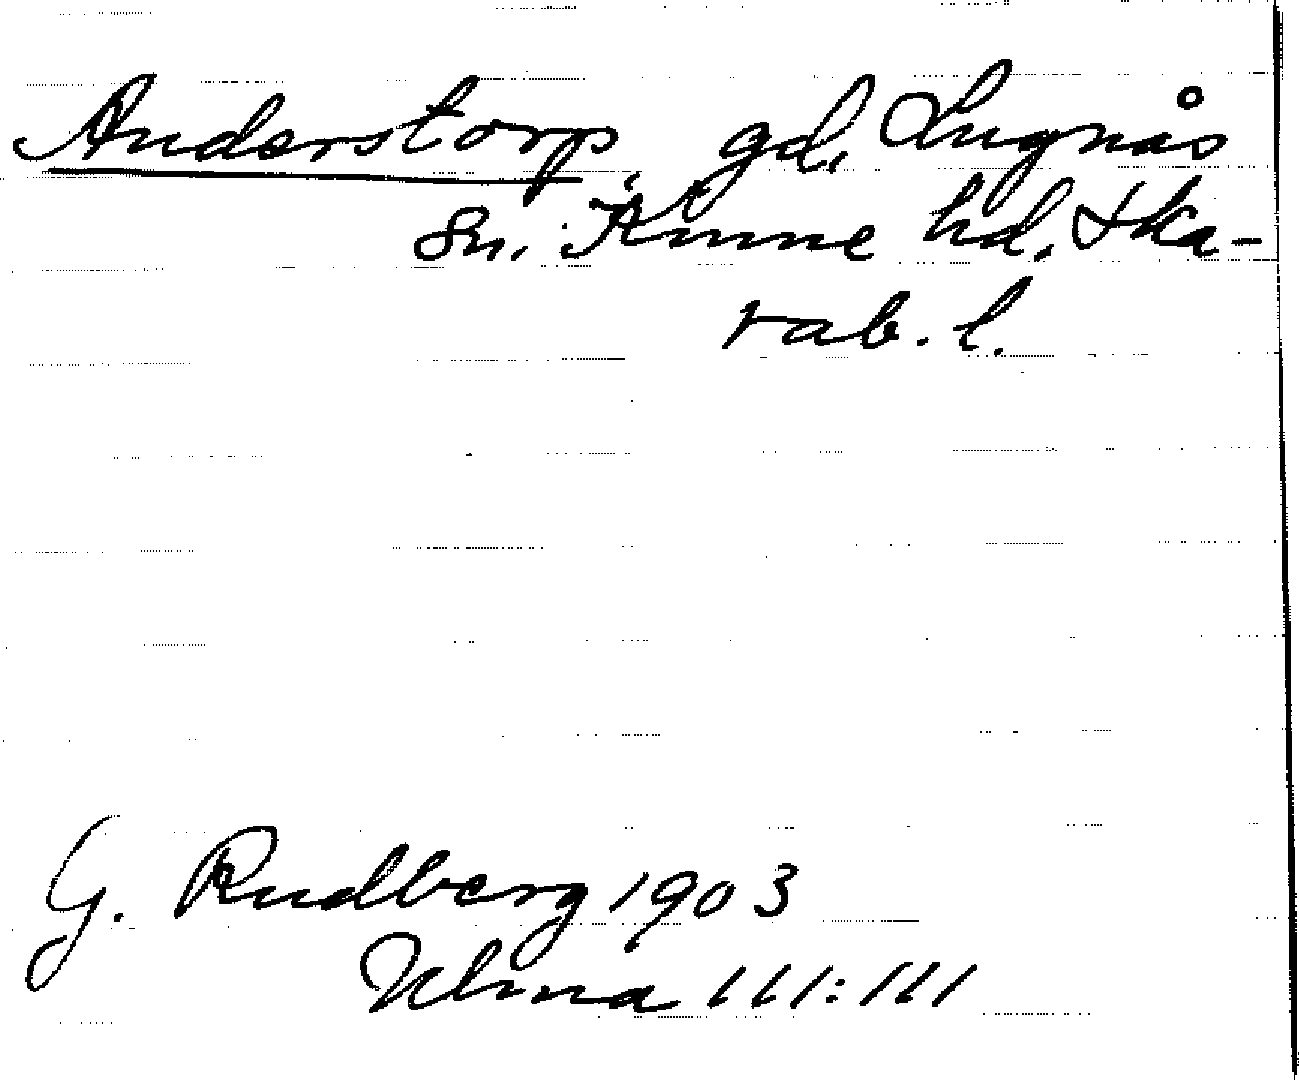 Anderstorp, gd, Lugnås
sn. Kinne hd. Ska-
rab. l.
G. Rudberg 1903
Ulma 111:111